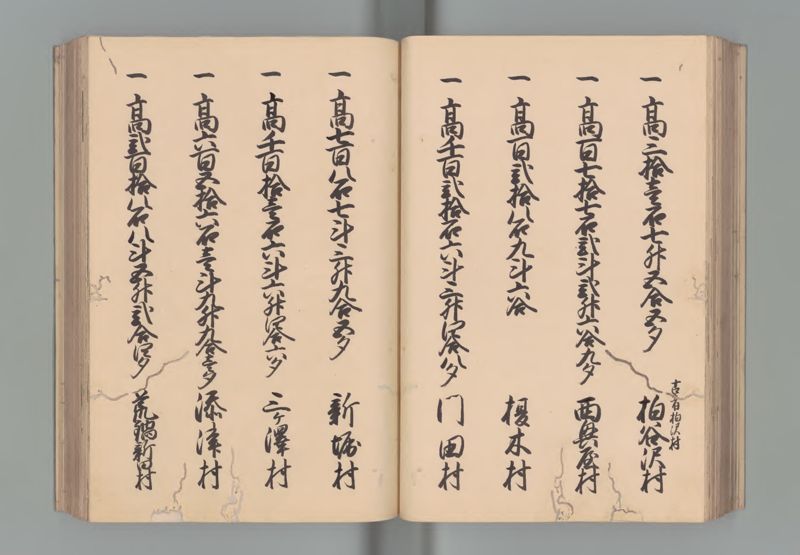 一 高三拾壱石七升五合五夕 柏谷沢村
古者柏沢村
一 高百七拾七石弐斗弐升六合九夕 西興屋村
一 高百弐拾八石九斗六合 榎木村
一 高千百弐拾石六斗三升四合八夕 門田村
一 高七百八石七斗三升九合五夕 新堀村
一 高千百拾壱石六斗六升四合六夕 三ヶ澤村
一 高六百五拾六石壱斗九升九合壱夕 添津村
一 高弐百拾八石八斗五升弐合四夕 荒鍋新田村